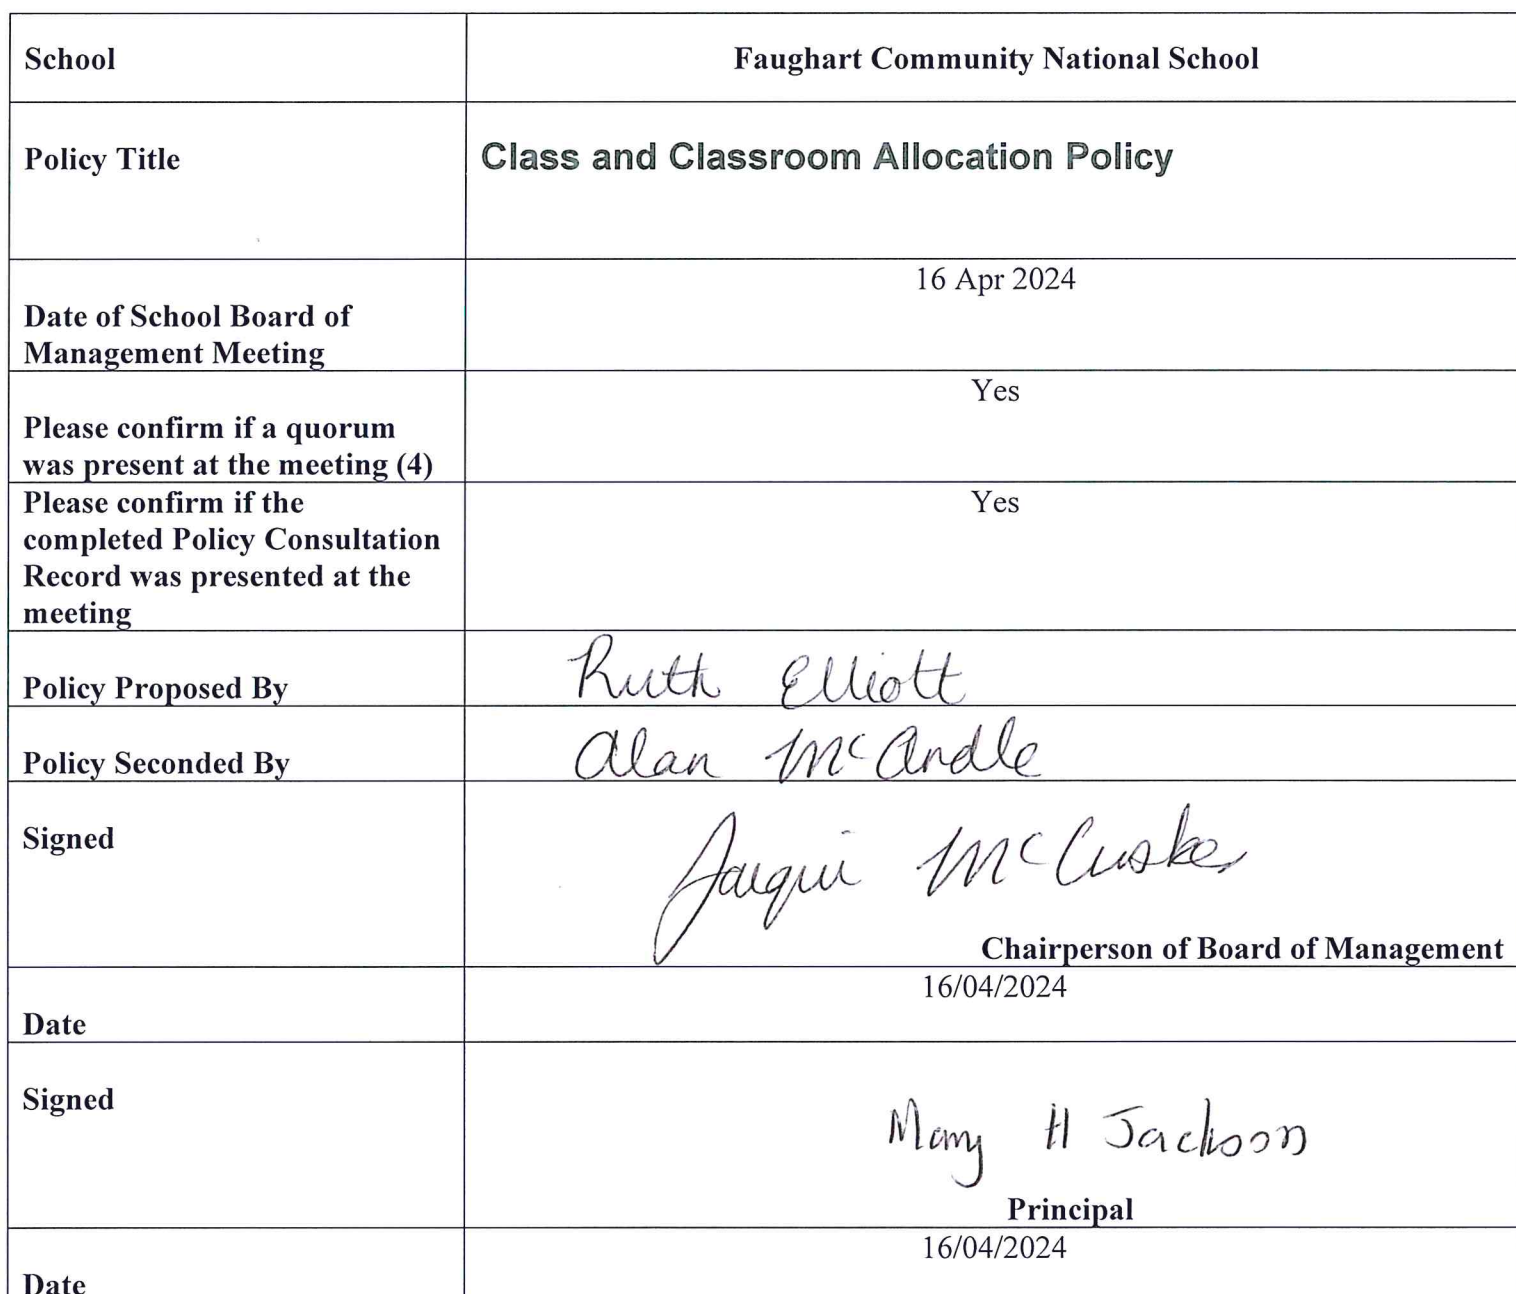 School
Faughart Community National School
Policy Title
Class and Classroom Allocation Policy
16 Apr 2024
Date of School Board of
Management Meeting
Yes
Please confirm if a quorum
was present at the meeting (4)
Please confirm if the
Yes
completed Policy Consultation
Record was presented at the
meeting
Policy Proposed By
Ruth Elliott
Policy Seconded By
Alan McArdle
Signed
Jacqui McCusker
Chairperson of Board of Management
16/04/2024
Date
Signed
Mary H Jackson
Principal
16/04/2024
Date